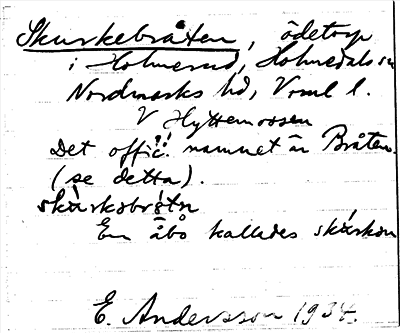 Skurkebråten, ödetorp
i Holmerud, Holmedals sn
Nordmarks hd, Vrml l.
V Hyttemossen
Det offic. namnet är Bråten.
(se detta).
skurksbråtn
En åbo kallades skurken
E. Andersson 1934.